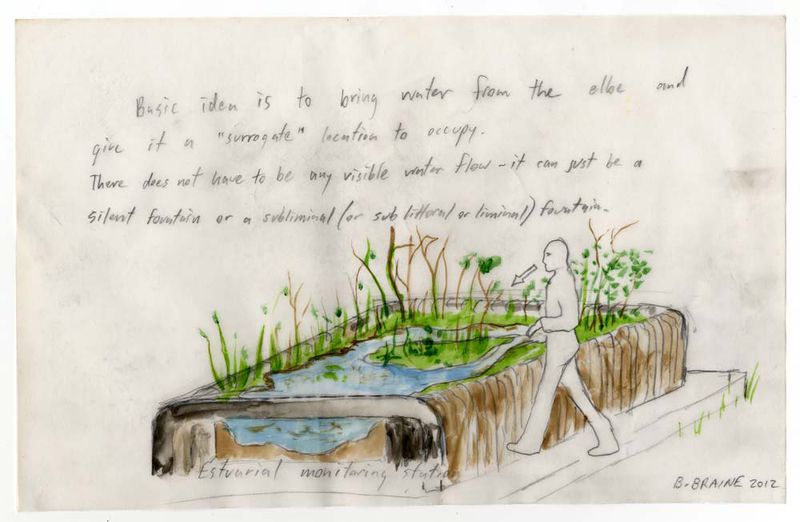 Basic idea is to bring water from the elbe and
give it a "surrogate" location to occupy.
There does not have to be any visible water flow - it can just be a
silent fountain or a subliminal (or sub littoral or liminal) fountain.
Estuarial monitoring station
B. BRAINE 2012